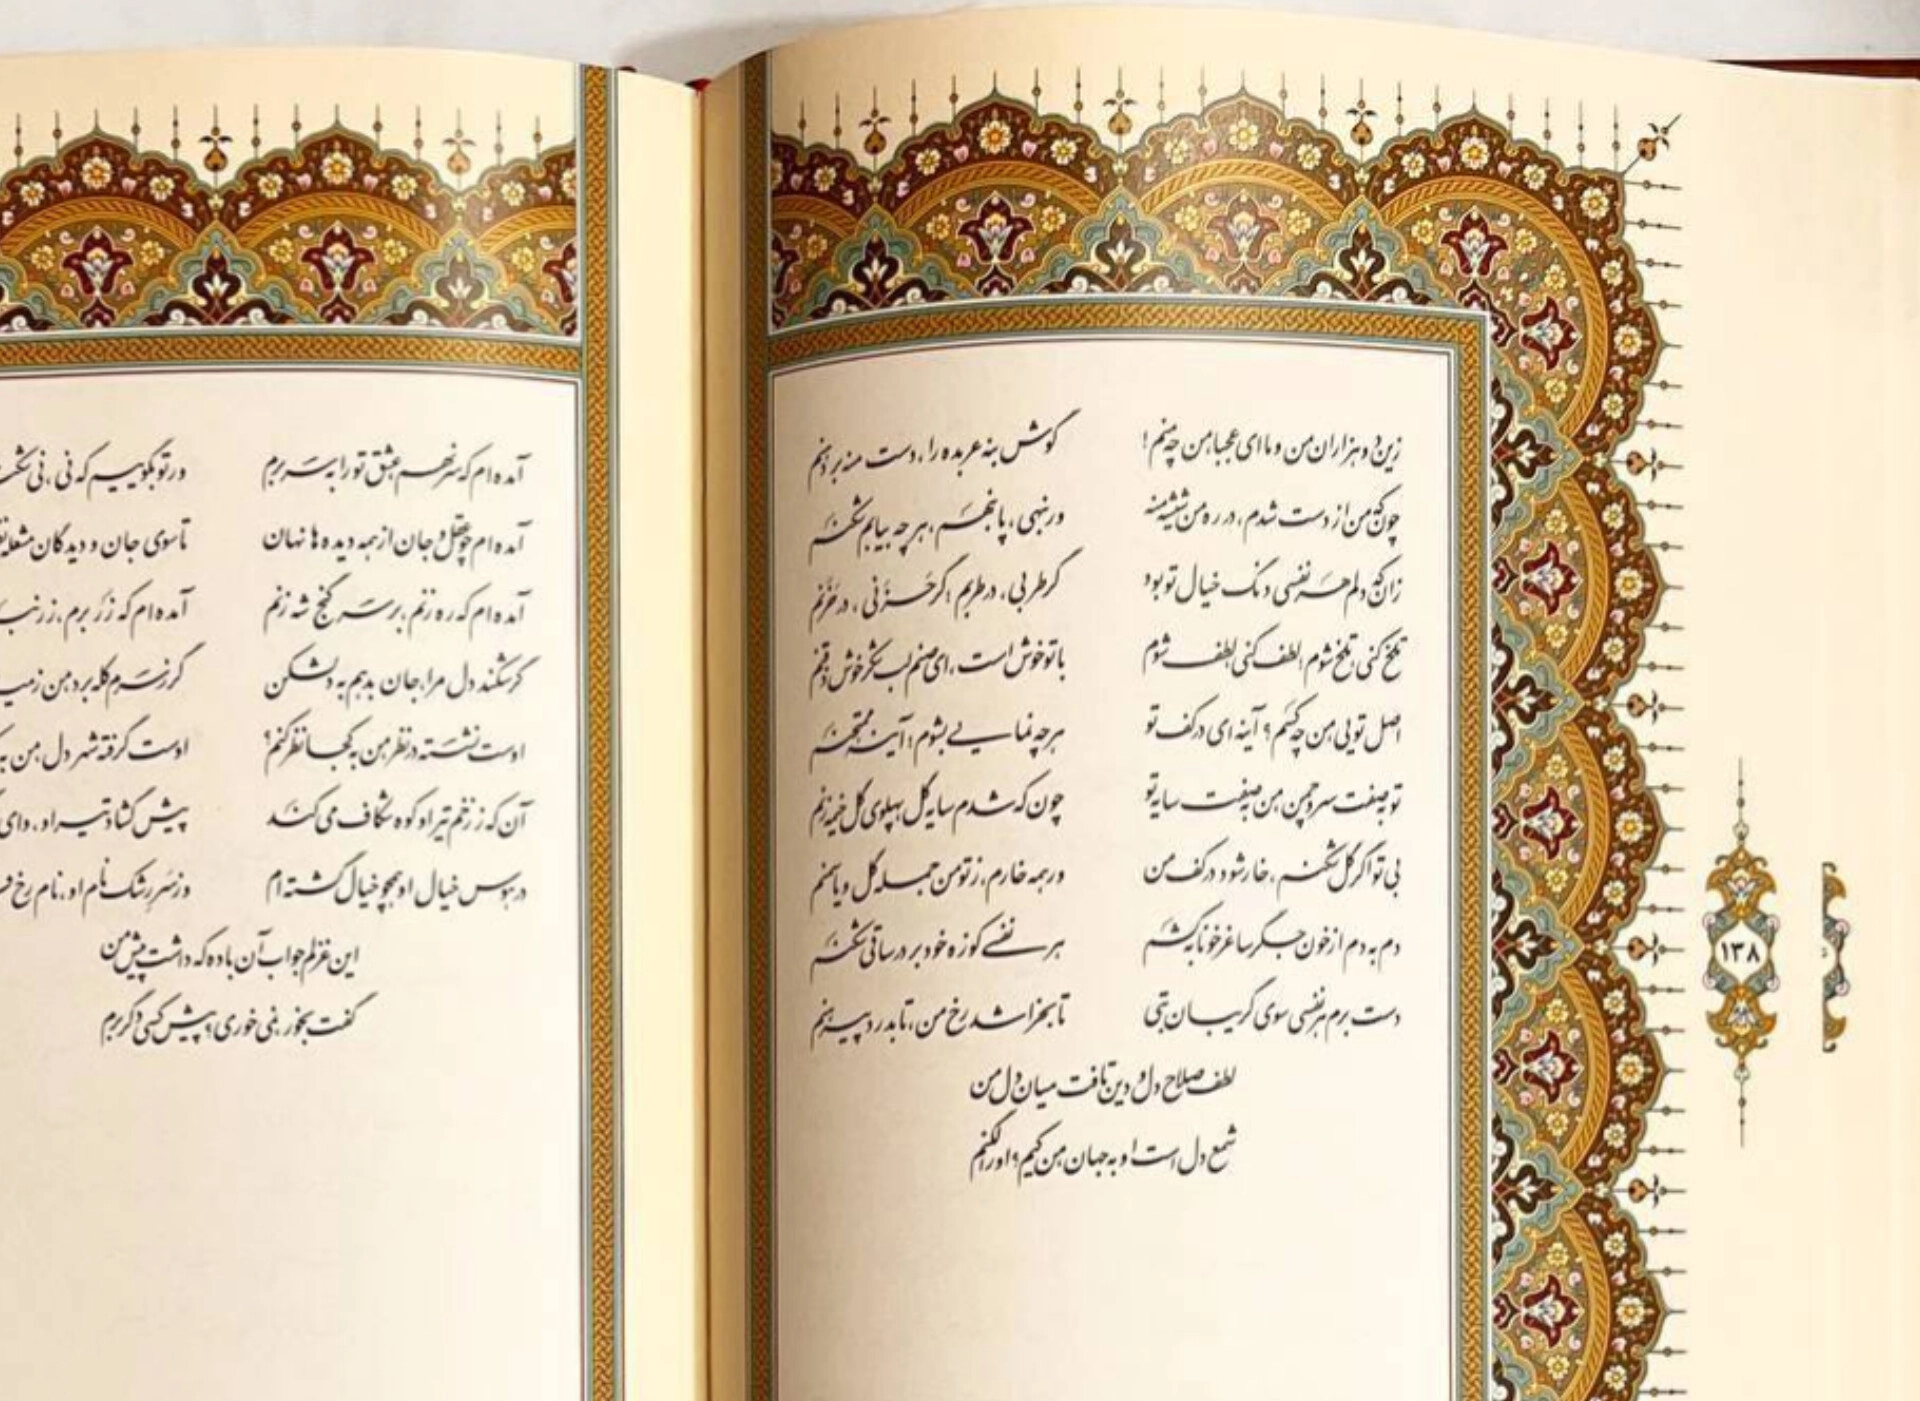 زین دو هزاران من و ما ای عجبا، من چه منم! گوش بنه عربده را، دست منه بر دهنم
چون که من از دست شدم، در ره من شیشه منه ور بنهی، پا بنهم، هر چه بیابم شکنم
زان که دلم هر نفسی دنگ خیال تو بود گر طربی، در طربم؛ گر حَزَنی، در حَزَنم
تلخ کنی تلخ شوم؛ لطف کنی لطف شوم با تو خوش است، ای صنم لب شکر خوش ذقنم
اصل تویی، من چه کسم؟ آینه ای در کف تو هر چه نمایی بشوم؛ آینه ممتحنم
تو به صفت سرو چمن، من به صفت سایه تو چون که شدم سایه گل پهلوی گل خیمه زنم
بی تو اگر گل شکنم، خار شود در کف من ور همه خارم، ز تو من جمله گل و یاسمنم
دم به دم از خون جگر ساغر خونابه کشم هر نفسی کوزه خود بر در ساقی شکنم
دست برم هر نفسی سوی گریبان بتی تا بخراشد رخ من، تا بدرد پیرهنم
لطف صلاح دل و دین تافت میان دل من
شمع دل است او به جهان، من کیم؟ او را لگنم
۱۳۸
آمده ام که سر نهم عشق تو را به سر برم ور تو بگوییم که نی، نی
آمده ام چو عقل و جان از همه دیده ها نهان تا سوی جان و دیدگان مشعله
آمده ام که ره زنم، بر سر گنج شه زنم آمده ام که زر برم، زر
گر شکند دل مرا، جان بدهم به دلشکن گر ز سرم کله برد من ز
اوست نشسته در نظر من به کجا نظر کنم؟ اوست گرفته شهر دل، من
آن که ز زخم تیر او کوه شکاف می کند پیش گشاد تیر او، وای
در هوس خیال او همچو خیال گشته ام وز سر رشک نام او، نام رخ
این غزلم جواب آن باده که داشت پیش من
گفت بخور، نمی خوری؟ پیش کسی دگر برم